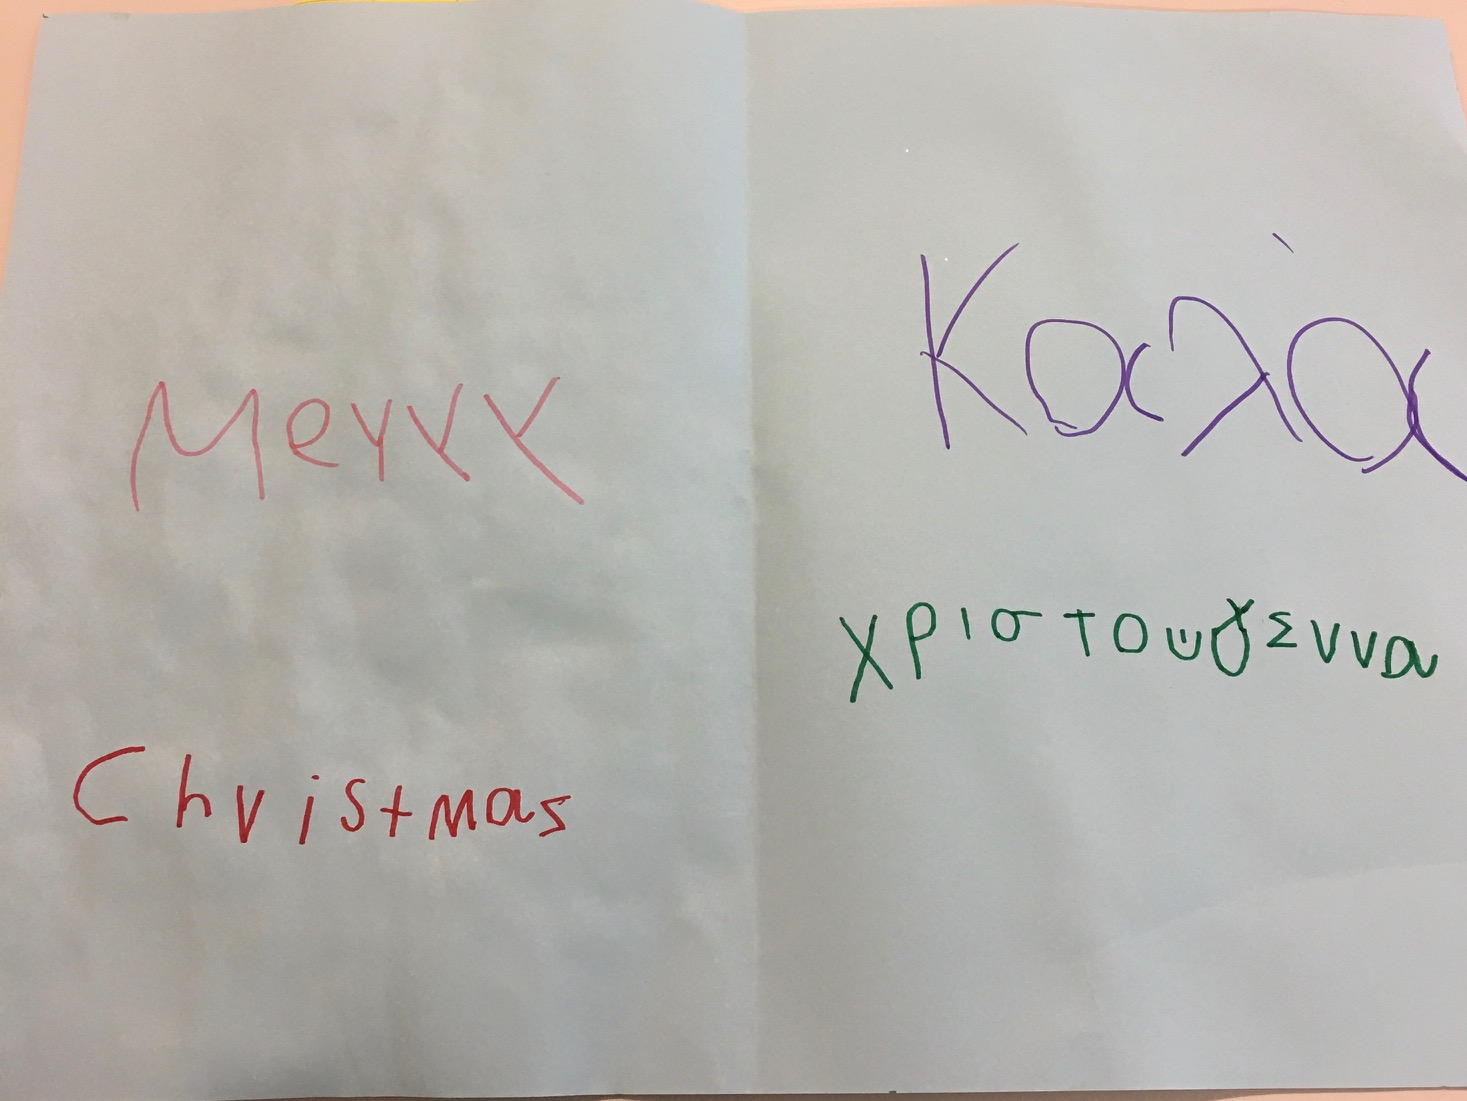 Merry
Christmas
Καλὰ
Χριστουγεννα